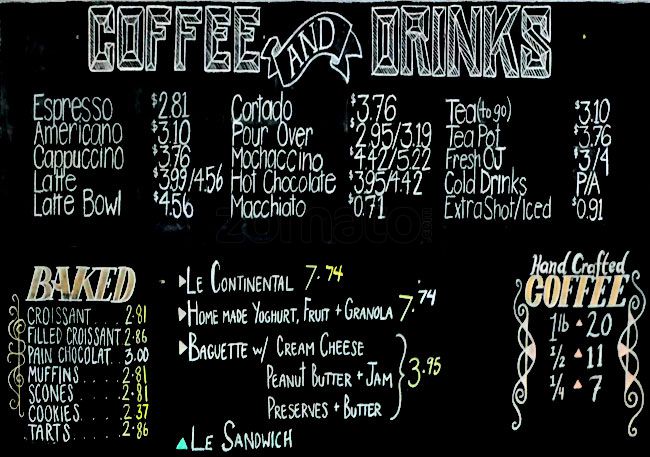 COFFEE AND DRINKS
Espresso $2.81
Americano $3.10
Cappuccino $3.76
Latte $3.99/4.56
Latte Bowl $4.56
Cortado $3.76
Pour Over $2.95/3.19
Mochaccino $4.42/5.22
Hot Chocolate $3.95/4.42
Macchiato $0.71
Tea (to go) $3.10
Tea Pot $3.76
Fresh OJ $3/4
Cold Drinks P/A
Extra Shot/Iced $0.91
zomato.com
BAKED
CROISSANT.....2.81
FILLED CROISSANT 2.86
PAIN CHOCOLAT. 3.00
MUFFINS......2.81
SCONES......2.81
COOKIES.....2.37
TARTS......2.86
LE CONTINENTAL 7.74
HOME MADE YOGHURT, FRUIT + GRANOLA 7.74
BAGUETTE W/ CREAM CHEESE
PEANUT BUTTER + JAM 3.95
PRESERVES + BUTTER
LE SANDWICH
Hand Crafted
COFFEE
1lb 20
1/2 11
1/4 7